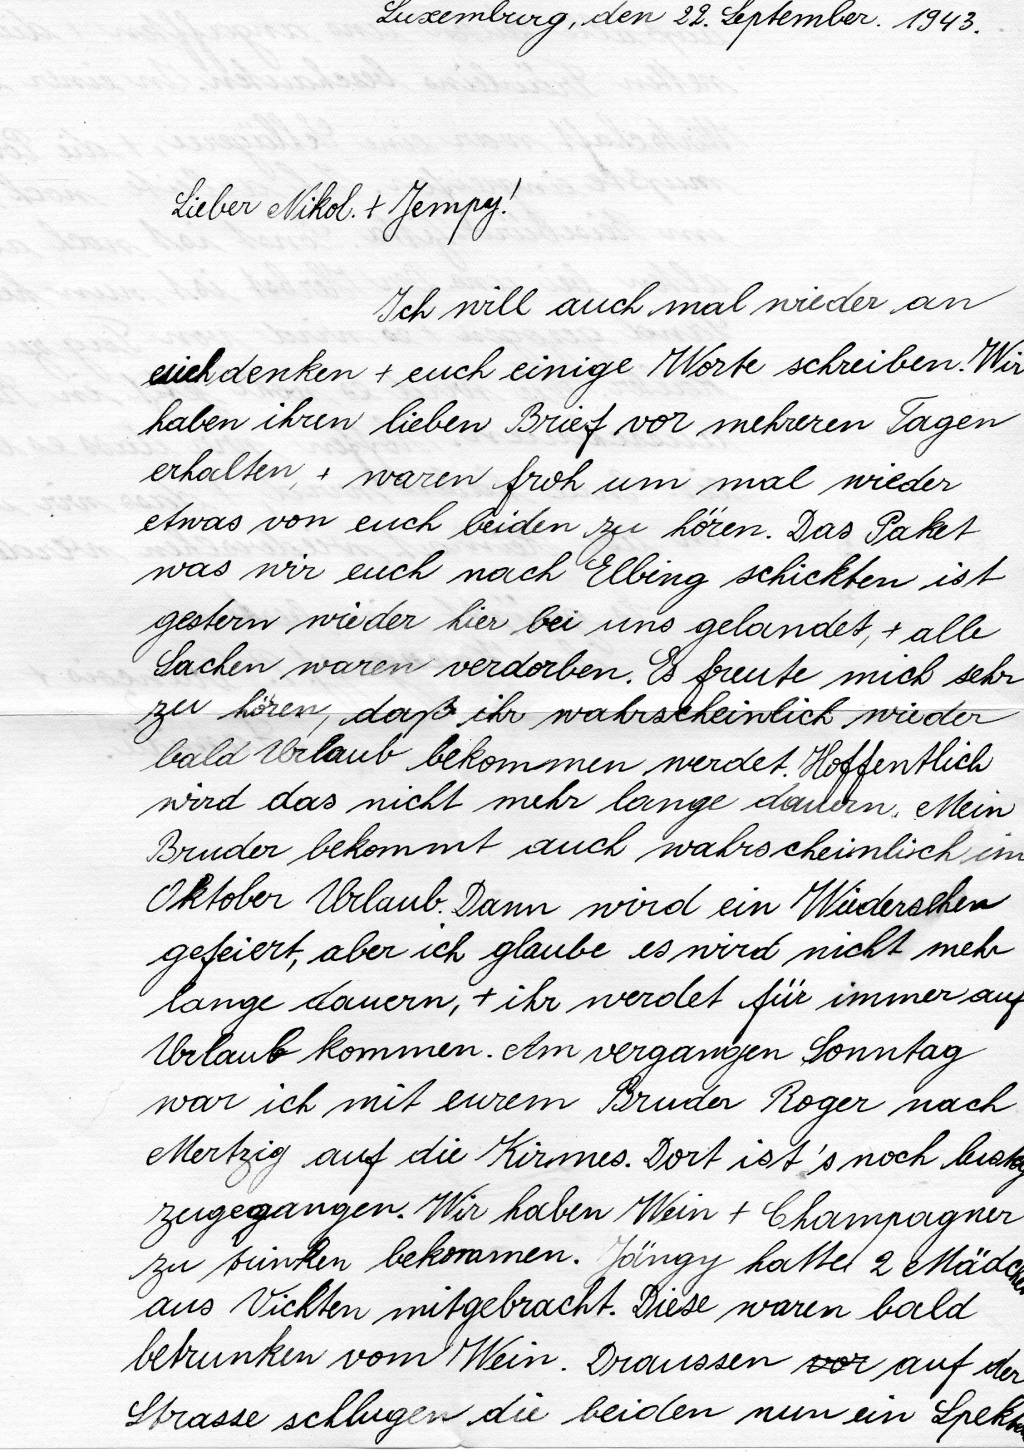 Luxemburg, den 22. September. 1943.
Lieber Nikol. + Jempy!
Ich will auch mal wieder an
euch denken + euch einige Worte schreiben. Wir
haben ihren lieben Brief vor mehreren Tagen
erhalten, + waren froh um mal wieder
etwas von euch beiden zu hören. Das Paket
was wir euch nach Elbing schickten ist
gestern wieder hier bei uns gelandet, + alle
Sachen waren verdorben. Es freute mich sehr
zu hören, daß ihr wahrscheinlich wieder
bald Urlaub bekommen werdet. Hoffentlich
wird das nicht mehr lange dauern. Mein
Bruder bekommt auch wahrscheinlich im
Oktober Urlaub. Dann wird ein Wiedersehen
gefeiert, aber ich glaube es wird nicht mehr
lange dauern, + ihr werdet für immer auf
Urlaub kommen. Am vergangen Sonntag
war ich mit eurem Bruder Roger nach
Mertzig auf die Kirmes. Dort ist's noch lustig
zugegangen. Wir haben Wein + Champagner
zu trinken bekommen. Jängy hatte 2 Mädchen
aus Vichten mitgebracht. Diese waren bald
betrunken vom Wein. Draussen vor auf der
Strasse schlugen die beiden nun ein